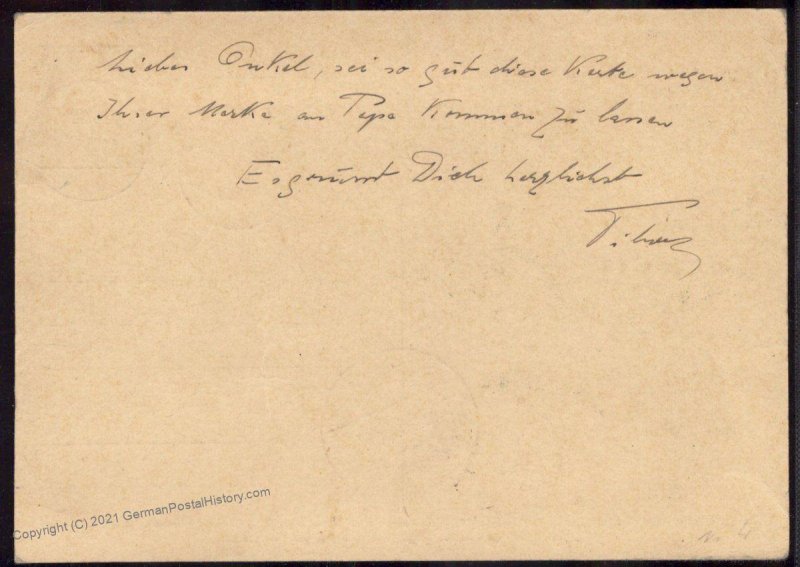 Lieber Onkel, sei so gut diese Karte wegen
Ihrer Marke an Papa kommen zu lassen
Es grüsst Dich herzlichst
Tibor
Copyright (C) 2021 GermanPostalHistory.com